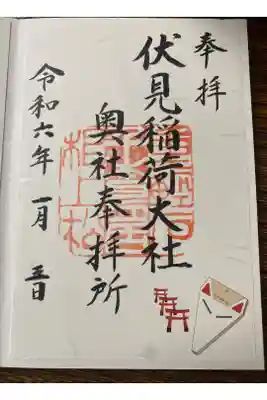 奉拝
伏見稲荷大社
奥社奉拝所
令和六年 一月 五日